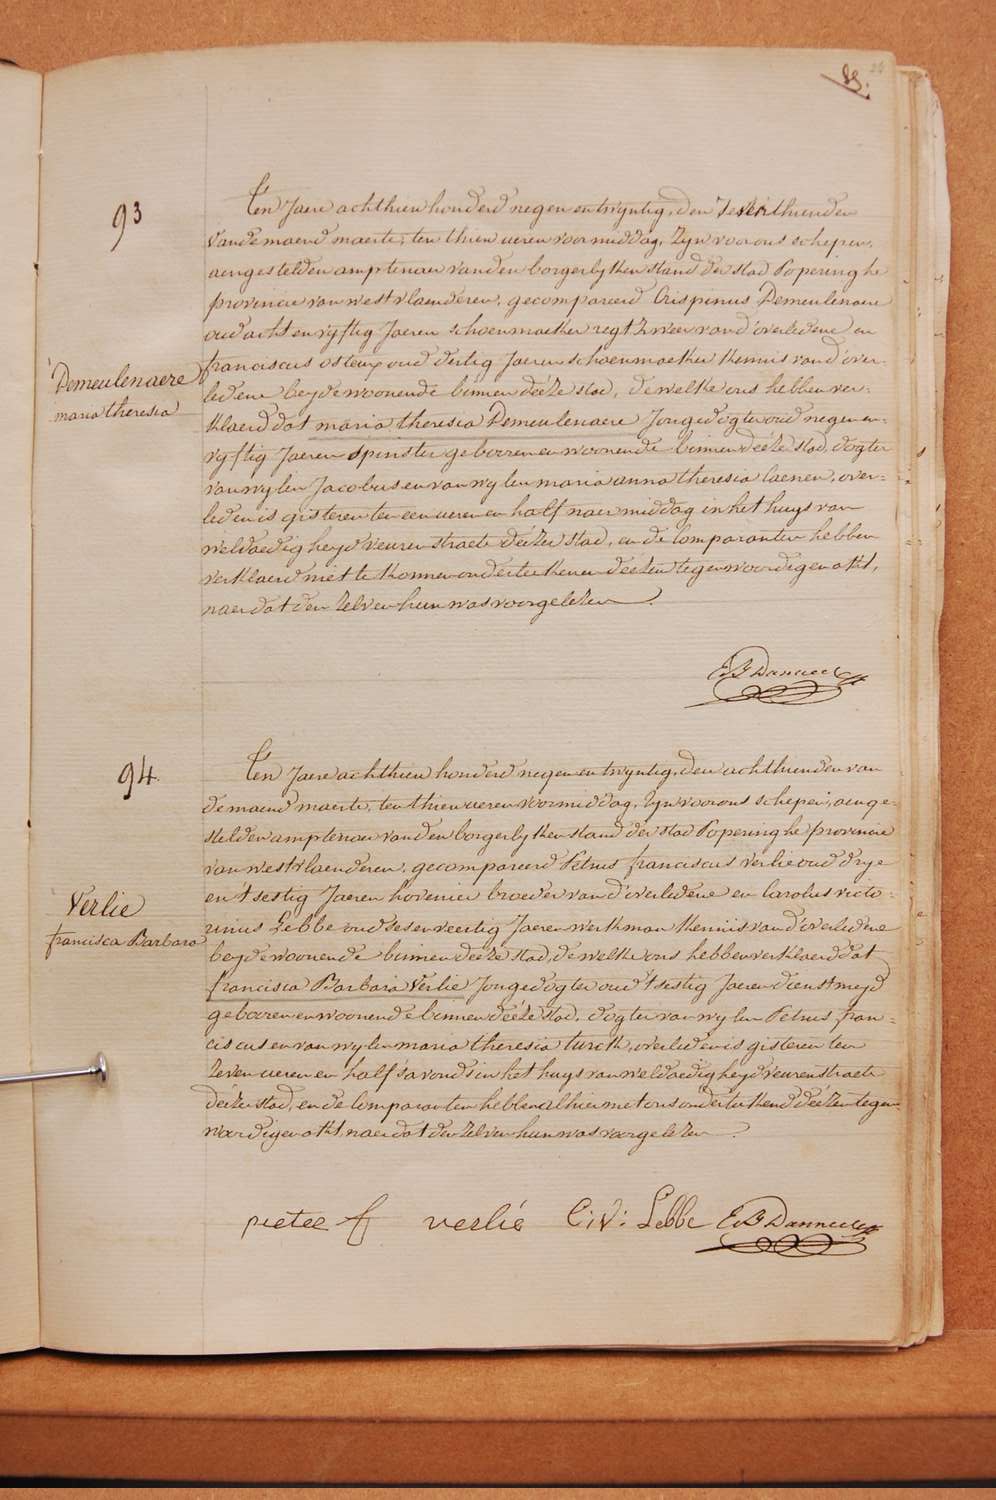 93
Ten Jaere achthien honderd negen entwyntig, den Zeventhienden
vande maend maerte, ten thien ueren voormiddag, Zyn voor ons schepen,
aengestelden amptenaer van den borgerlyken stand der stad Poperinghe
provincie van westvlaenderen, gecompareerd Crispinus Demeulenaere
oud acht en vyftig Jaeren schoenmaeker regtzweer vand'overledene en
franciscus osteux oud dertig Jaeren schoenmaeker kennis vand'over-
Demeulenaere
maria theresia
ledene beyde woonende binnen deéze stad, de welke ons hebben ver-
klaerd dat maria theresia Demeulenaere Jongedogter oud negen en-
vyftig Jaeren spinster gebooren en woonende binnen deéze stad, dogter
van wylen Jacobus en van wylen maria anna theresia Caenen, over-
leden is gisteren ten een ueren en half naermiddag in het huys van
weldaedigheyd veurenstraete deézer stad, en de Comparanten hebben
verklaerd niet te konnen onderteekenen deézen tegenwoordigen akt,
naer dat den Zelven hun was voorgelezen.
94.
Ten Jaere achthien honderd negen entwyntig, den achthienden van
de maend maerte, ten thien ueren voormiddag, Zyn voor ons schepen, aenge-
stelden amptenaer van den borgerlyken stand der stad Poperinghe provincie
van westvlaenderen, gecompareerd Petrus franciscus verlie oud drye
en t'sestig Jaeren hovenier broeder vand'overledene en Carolus victo-
Verlie
francisca Barbara
rinus Lebbe oud ses en veertig Jaeren werkman kennis vand'overledene
beyde woonende binnen deéze stad, de welke ons hebben verklaerd dat
francisca Barbara Verlie Jongedogter oud t'sestig Jaeren dienstmeyd
gebooren en woonende binnen deéze stad, dogter van wylen Petrus fran-
ciscus en van wylen maria theresia turck, overleden is gisteren ten
Zeven ueren en half s'avonds in het huys van weldaedigheyd veurenstraete
deézer stad, en de Comparanten hebben alhier met ons onderteekend deézen tegen-
woordigen akt, naer dat den zelven hun was voorgelezen.
pieter f verlié C: V: Lebbe